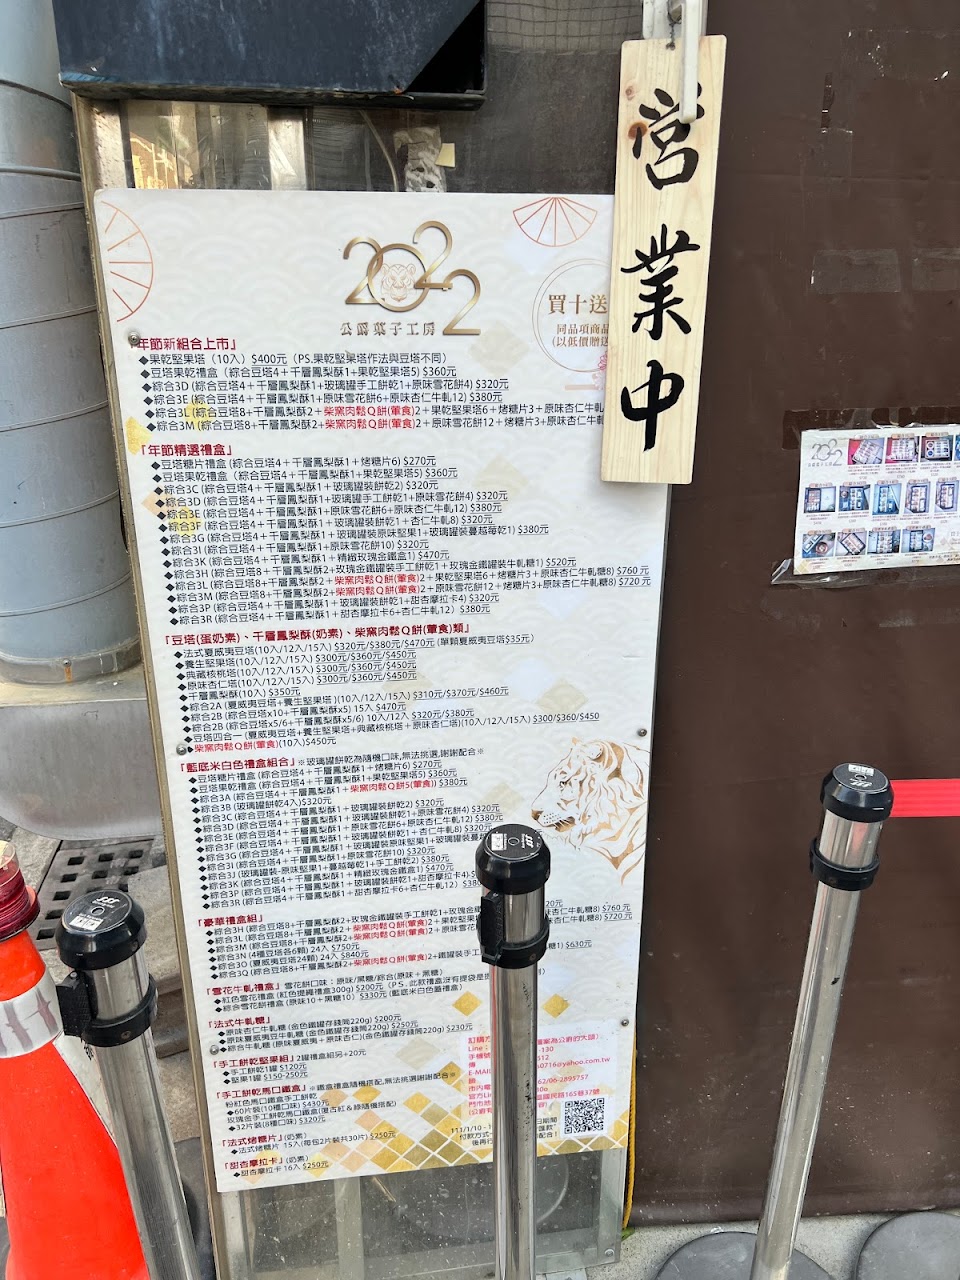 營業中
2022
公爵菓子工房
買十送
同品項商品
(以低價贈送
年節新組合上市」
◆果乾堅果塔（10入）$400元（PS.果乾堅果塔作法與豆塔不同）
◆豆塔果乾禮盒（綜合豆塔4＋千層鳳梨酥1+果乾堅果塔5) $360元
◆綜合3D (綜合豆塔4＋千層鳳梨酥1+玻璃罐手工餅乾1+原味雪花餅4) $320元
◆綜合3E (綜合豆塔4＋千層鳳梨酥1+原味雪花餅6+原味杏仁牛軋12) $380元
◆綜合3L (綜合豆塔8+千層鳳梨酥2＋柴窯肉鬆Ｑ餅(葷食)2＋果乾堅果塔6＋烤糖片3＋原味杏仁牛軋
◆綜合3M (綜合豆塔8+千層鳳梨酥2+柴窯肉鬆Ｑ餅(葷食)2＋原味雪花餅12＋烤糖片3+原味
「年節精選禮盒」
◆豆塔糖片禮盒 (綜合豆塔4＋千層鳳梨酥1＋烤糖片6) $270元
◆豆塔果乾禮盒（綜合豆塔4＋千層鳳梨酥1+果乾堅果塔5) $360元
◆綜合3C (綜合豆塔4＋千層鳳梨酥1＋玻璃罐裝餅乾2) $320元
◆綜合3D (綜合豆塔4＋千層鳳梨酥1+玻璃罐手工餅乾1+原味雪花餅4) $320元
◆綜合3E (綜合豆塔4＋千層鳳梨酥1+原味雪花餅6+原味杏仁牛軋12) $380元
◆綜合3F (綜合豆塔4＋千層鳳梨酥1＋玻璃罐裝餅乾1＋杏仁牛軋8) $320元
◆綜合3G (綜合豆塔4＋千層鳳梨酥1＋玻璃罐裝原味堅果1+玻璃罐裝蔓越莓乾1) $380元
◆綜合3I (綜合豆塔4＋千層鳳梨酥1＋原味雪花餅10) $320元
◆綜合3K (綜合豆塔4＋千層鳳梨酥1＋精緻玫瑰金鐵盒1) $470元
◆綜合3H (綜合豆塔8＋千層鳳梨酥2+玫瑰金鐵罐裝手工餅乾1＋玫瑰金鐵罐裝牛軋糖1) $520元
◆綜合3L (綜合豆塔8+千層鳳梨酥2＋柴窯肉鬆Ｑ餅(葷食)2＋果乾堅果塔6＋烤糖片3＋原味杏仁牛軋糖8) $760 元
◆綜合3M (綜合豆塔8+千層鳳梨酥2+柴窯肉鬆Ｑ餅(葷食)2＋原味雪花餅12＋烤糖片3+原味杏仁牛軋糖8) $720 元
◆綜合3P (綜合豆塔4＋千層鳳梨酥1＋玻璃罐裝餅乾1+甜杏摩拉卡4) $320元
◆綜合3R (綜合豆塔4＋千層鳳梨酥1＋甜杏摩拉卡6+杏仁牛軋12）$380元
「豆塔(蛋奶素)、千層鳳梨酥(奶素)、柴窯肉鬆Ｑ餅(葷食)類」
◆法式夏威夷豆塔(10入/12入/15入) $320元/$380元/$470元 (單顆夏威夷豆塔$35元）
◆養生堅果塔(10入/12入/15入) $300元/$360元/$450元
◆典藏核桃塔(10入/12入/15入) $300元/$360元/$450元
◆原味杏仁塔(10入/12入/15入) $300元/$360元/$450元
◆千層鳳梨酥(10入) $350元
◆綜合2A (夏威夷豆塔+養生堅果塔 )(10入/12入/15入) $310元/$370元/$460元
◆綜合2B (綜合豆塔x10+千層鳳梨酥x5) 15入 $470元
◆綜合2B (綜合豆塔x5/6+千層鳳梨酥x5/6) 10入/12入 $320元/$380元
◆豆塔四合一 (夏威夷豆塔＋養生堅果塔+典藏核桃塔＋原味杏仁塔)(10入/12入/15入) $300/$360/$450
◆柴窯肉鬆Ｑ餅(葷食)(10入)$450元
「藍底米白色禮盒組合」※玻璃罐餅乾為隨機口味,無法挑選,謝謝配合※
◆豆塔糖片禮盒 (綜合豆塔4＋千層鳳梨酥1＋烤糖片6) $270元
◆豆塔果乾禮盒 (綜合豆塔4＋千層鳳梨酥1＋果乾堅果塔5) $360元
◆綜合3A (綜合豆塔4＋千層鳳梨酥1＋柴窯肉鬆Ｑ餅5(葷食)) $380元
◆綜合3B (玻璃罐餅乾4入)$320元
◆綜合3C (綜合豆塔4＋千層鳳梨酥1＋玻璃罐裝餅乾2) $320元
◆綜合3D (綜合豆塔4＋千層鳳梨酥1＋玻璃罐手工餅乾1+原味雪花餅4) $320元
◆綜合3E (綜合豆塔4＋千層鳳梨酥1＋原味雪花餅6＋原味杏仁牛軋12) $380元
◆綜合3F (綜合豆塔4＋千層鳳梨酥1＋玻璃罐裝餅乾1＋杏仁牛軋8) $320元
◆綜合3G (綜合豆塔4＋千層鳳梨酥1＋玻璃罐裝原味堅果1＋玻璃罐裝蔓越
◆綜合3I (綜合豆塔4＋千層鳳梨酥1＋原味雪花餅10) $320元
◆綜合3J (玻璃罐裝-原味堅果1＋蔓越莓乾1＋手工餅乾2) $380元
◆綜合3K (綜合豆塔4＋千層鳳梨酥1＋精緻玫瑰金鐵盒1) $470元
◆綜合3P (綜合豆塔4＋千層鳳梨酥1＋玻璃罐裝餅乾1+甜杏摩拉卡4) $
◆綜合3R (綜合豆塔4＋千層鳳梨酥1＋甜杏摩拉卡6+杏仁牛軋12）$380
「豪華禮盒組」
◆綜合3H (綜合豆塔8＋千層鳳梨酥2+玫瑰金鐵罐裝手工餅乾1＋玫瑰金 20元
◆綜合3L (綜合豆塔8+千層鳳梨酥2＋柴窯肉鬆Ｑ餅(葷食)2＋果乾堅果 杏仁牛軋糖8) $760 元
◆綜合3M (綜合豆塔8+千層鳳梨酥2+柴窯肉鬆Ｑ餅(葷食)2＋原味雪花 味杏仁牛軋糖8) $720 元
◆綜合3N (4種豆塔各6顆) 24入 $750元
◆綜合3O (夏威夷豆塔24顆) 24入 $840元
◆綜合3Q (綜合豆塔8+千層鳳梨酥2+柴窯肉鬆Ｑ餅(葷食)2+鐵罐裝手工 糖1) $630元
「雪花牛軋禮盒」雪花餅口味：原味/黑糖/綜合(原味＋黑糖)
◆紅色雪花禮盒 (紅色提繩禮盒300g) $200元（PS.此款禮盒沒有提袋
◆綜合雪花餅禮盒 (原味10＋黑糖10）$330元 (藍底米白色蓋禮盒)
「法式牛軋糖」
◆原味杏仁牛軋糖 (金色鐵罐存錢筒220g) $200元
◆原味夏威夷豆牛軋糖 (金色鐵罐存錢筒220g) $250元
◆綜合牛軋糖 (原味夏威夷＋原味杏仁)(金色鐵罐存錢筒220g) $230元
「手工餅乾堅果組」2罐禮盒組另+20元
◆手工餅乾1罐 $120元
◆堅果1罐 $150-250元
「手工餅乾馬口鐵盒」※鐵盒禮盒隨機搭配,無法挑選謝謝合※
粉紅色馬口鐵盒手工餅乾
◆60片裝(10種口味) $430元
玫瑰金手工餅乾馬口鐵盒(復古紅＆綠隨機搭配)
◆32片裝(8種口味) $320元
「法式烤糖片」(奶素)
◆法式烤糖片 15入(每包2片裝共30片) $250元
「甜杏摩拉卡」(奶素)
◆甜杏摩拉卡 16入 $250元
訂購方
Line：
手機號
E-MAIL
0716@yahoo.com.tw
62/06-2895757
區國民路165巷37號
111/1/10 -